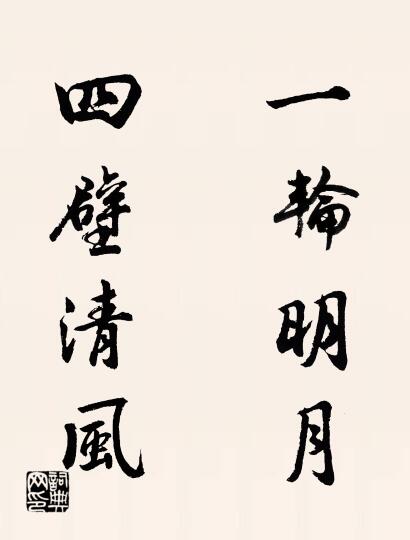 一輪明月
四壁清風
詞典網印